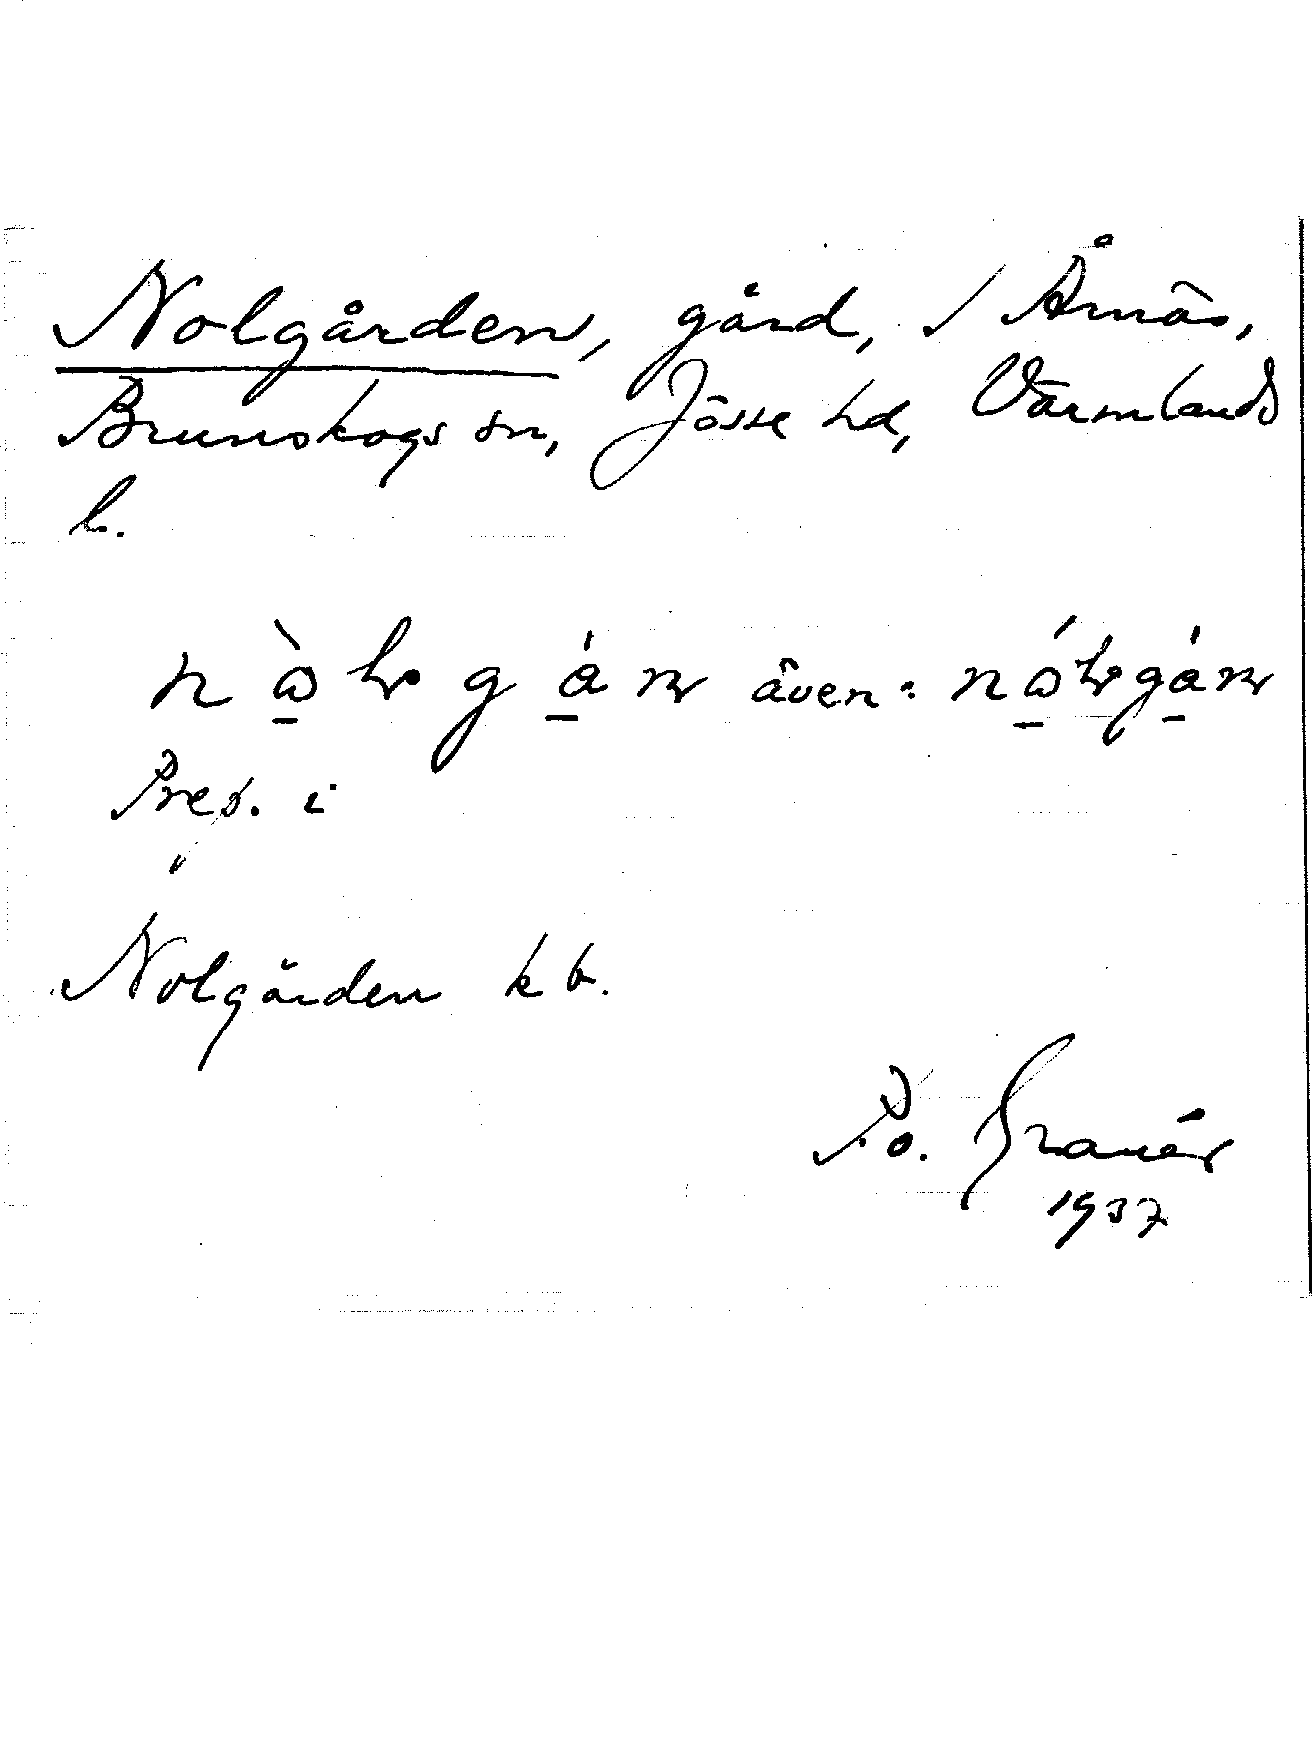 Nolgården, gård, / Årnäs,
Brunskogs sn, Jösse hd, Värmlands
l.
även:
Prep. i
Nolgården kb.
P.o. Granér
1937